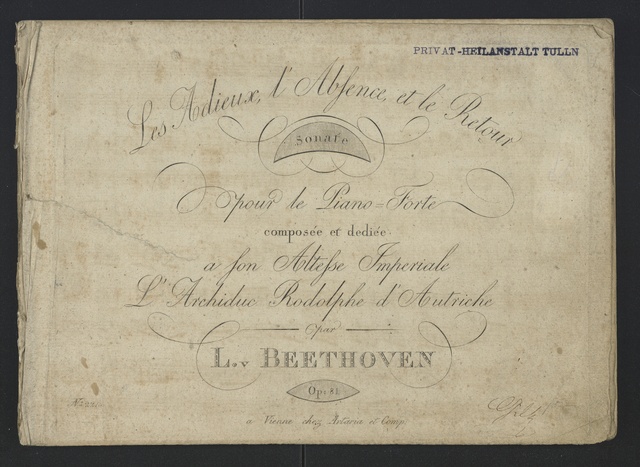 PRIVAT-HEILANSTALT TULLN
Les Adieux, l'Absence, et le Retour
Sonate
pour le Piano=Forte
composée et dediée
a son Altesse Imperiale
L'Archiduc Rodolphe d'Autriche
par
L. v BEETHOVEN
Op: 81
a Vienne chez Artaria et Comp.